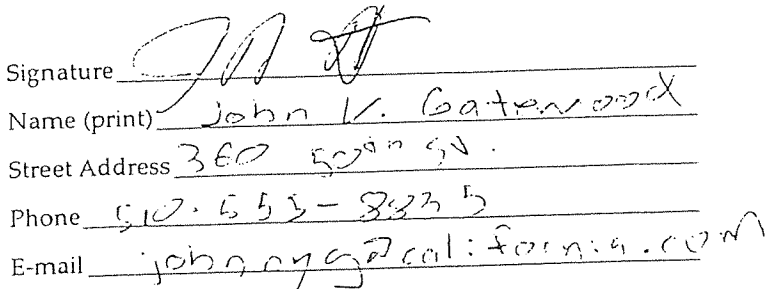 Signature
Name (print) John V. Gatewood
Street Address 360
Phone 510.555-8335
E-mail johnnyg@california.com